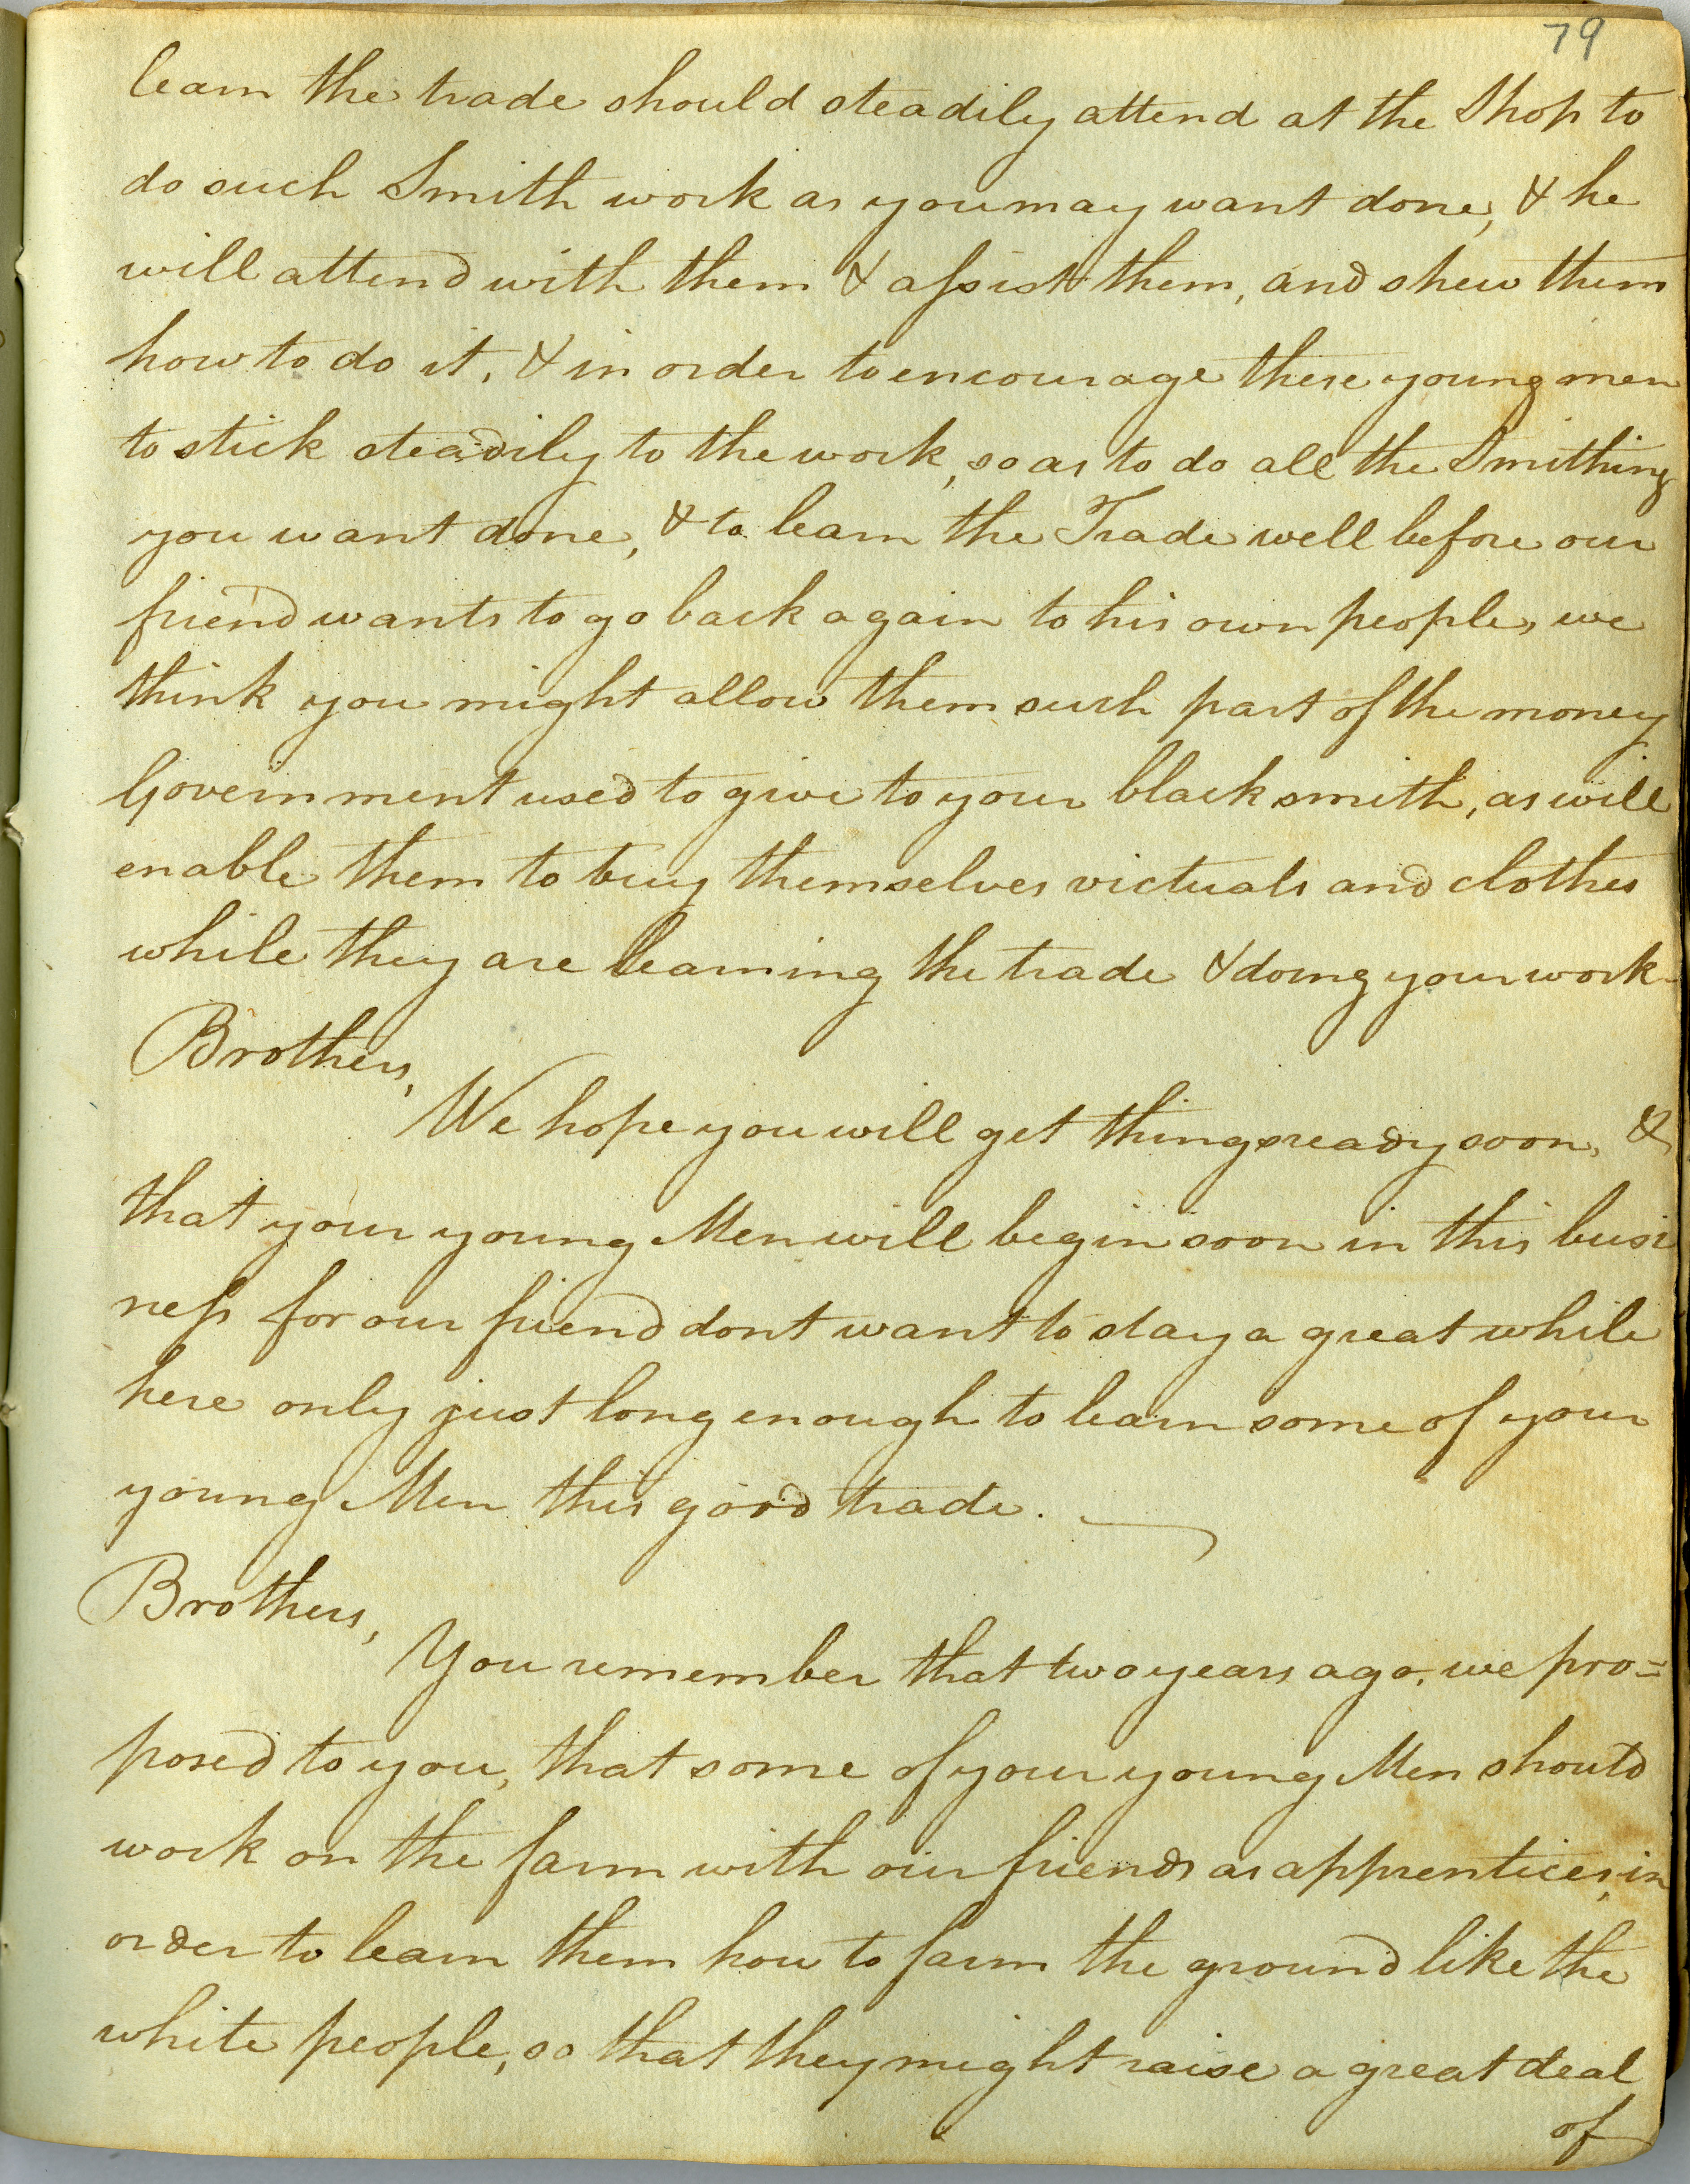 79
learn the trade should steadily attend at the Shop to
do such Smith work as you may want done, & he
will attend with them & assist them, and shew them
how to do it, & in order to encourage these young men
to stick steadily to the work, so as to do all the Smithing
you want done, & to learn the Trade well before our
friend wants to go back again to his own people, we
think you might allow them such part of the money
Government used to give to your blacksmith, as will
enable them to buy themselves victuals and clothes
while they are learning the trade & doing your work-
Brothers,
We hope you will get things ready soon, &
that your young Men will begin soon in this busi
ness for our friend dont want to stay a great while
here only just long enough to learn some of your
young Men this good trade.
Brothers,
You remember that two years ago, we pro=
posed to you, that some of your young Men should
work on the farm with our friends as apprentices, in
order to learn them how to farm the ground like the
white people, so that they might raise a great deal
of